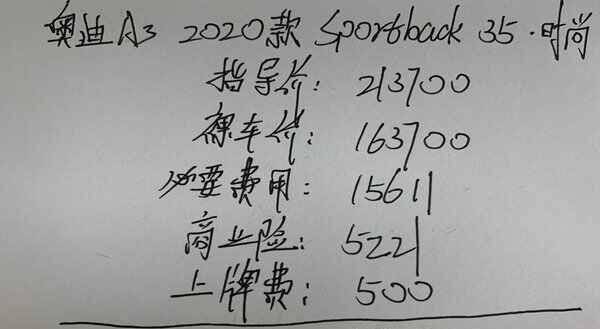 奥迪A3 2020款 Sportback 35·时尚
指导价: 213700
裸车价: 163700
必要费用: 15611
商业险: 5221
上牌费: 500